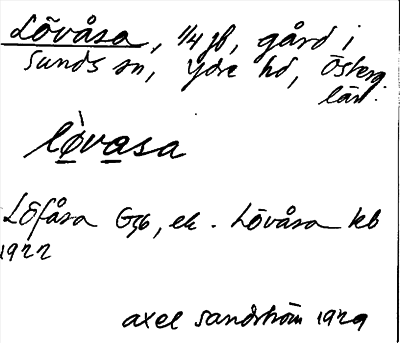 Lövåsa, 1/4 jb, gård i
Sunds sn, Ydre hd, Österg.
län.
lø̀vasa
Löfåsa Gsb, ek. Lövåsa kb
1922
Axel Sandström 1929